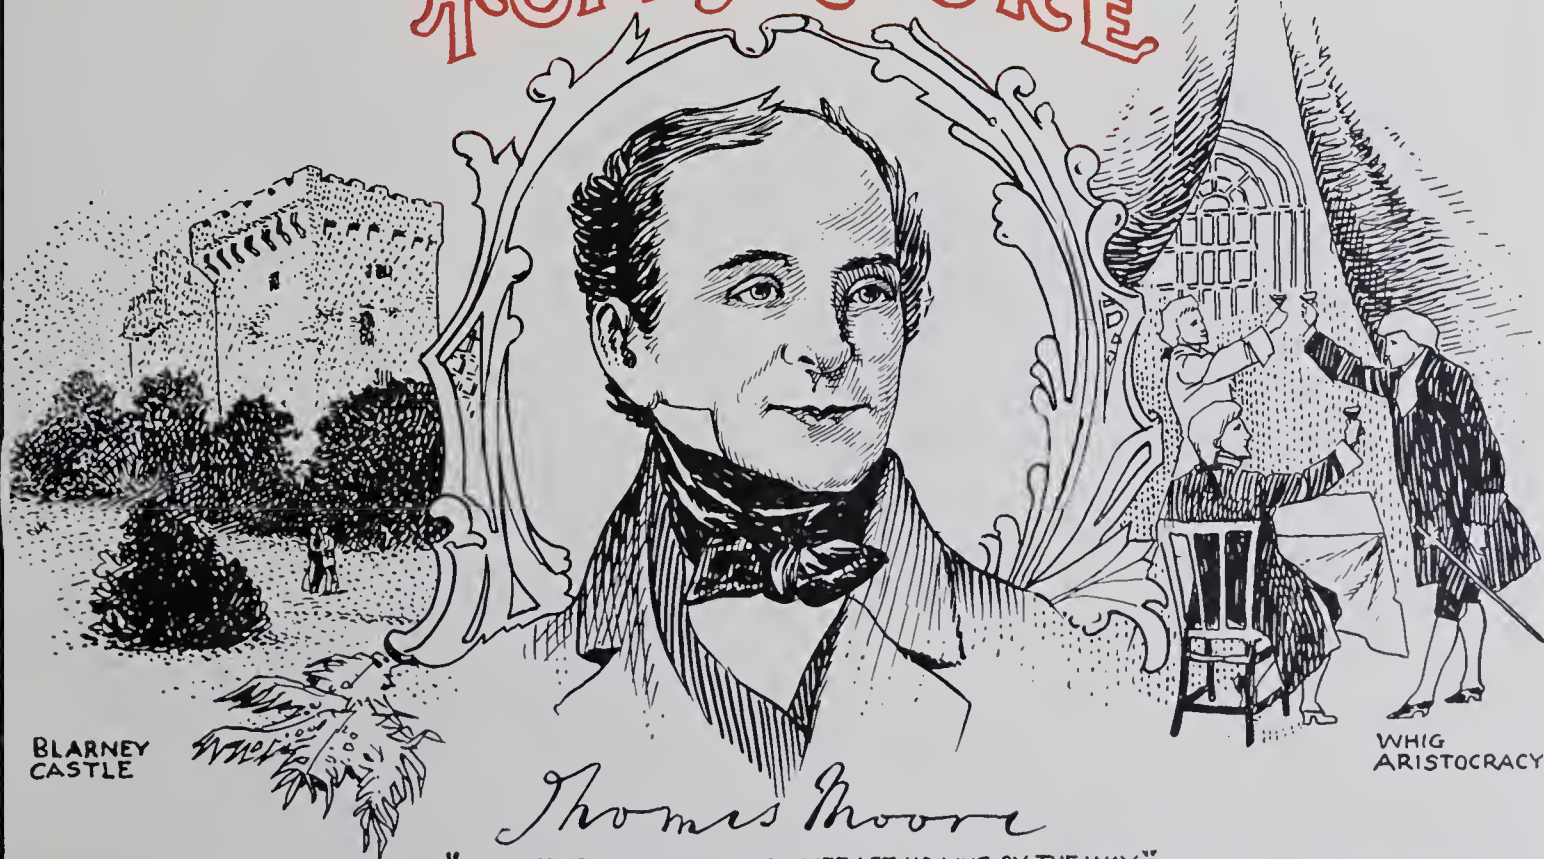 BLARNEY
CASTLE
WHIG
ARISTOCRACY
Thomas Moore
BY THE WAY"